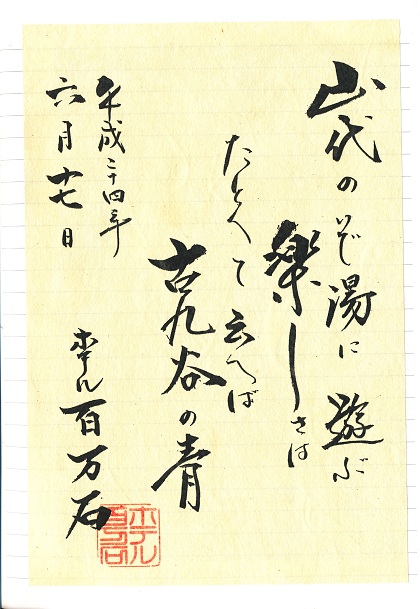 山代のいで湯に遊ぶ
楽しさは
たとへて云へば
古九谷の青
平成二十四年
六月十七日
ホテル百万石
ホテル
百万石